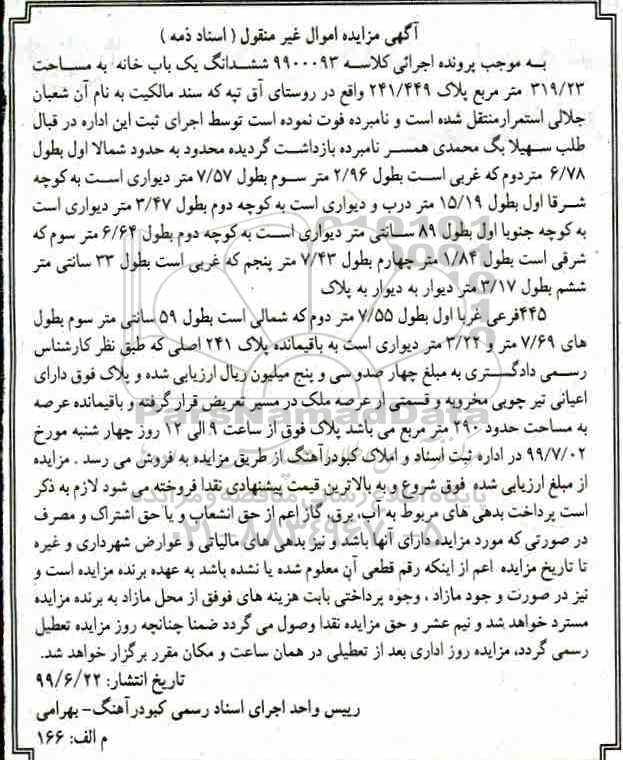 آگهی مزایده اموال غیر منقول ( اسناد ذمه )
به موجب پرونده اجرائی کلاسه ۹۹۰۰۰۹۳ ششدانگ یک باب خانه به مساحت
۳۱۹/۲۳ متر مربع پلاک ۲۴۱/۴۴۹ واقع در روستای آق تپه که سند مالکیت به نام آن شعبان
جلالی استمرارمنتقل شده است و نامبرده فوت نموده است توسط اجرای ثبت این اداره در قبال
طلب سهیلا بگ محمدی همسر نامبرده بازداشت گردیده محدود به حدود شمالا اول بطول
۶/۷۸ متردوم که غربی است بطول ۲/۹۶ متر سوم بطول ۷/۵۷ متر دیواری است به کوچه
شرقا اول بطول ۱۵/۱۹ متر درب و دیواری است به کوچه دوم بطول ۳/۴۷ متر دیواری است
به کوچه جنوبا اول بطول ۸۹ سانتی متر دیواری است به کوچه دوم بطول ۶/۶۴ متر سوم که
شرقی است بطول ۱/۸۴ متر چهارم بطول ۷/۴۳ متر پنجم که غربی است بطول ۳۳ سانتی متر
ششم بطول ۳/۱۷ متر دیوار به دیوار به پلاک
۴۴۵فرعی غربا اول بطول ۷/۵۵ متر دوم که شمالی است بطول ۵۹ سانتی متر سوم بطول
های ۷/۶۹ متر و ۳/۲۴ متر دیواری است به باقیمانده پلاک ۲۴۱ اصلی که طبق نظر کارشناس
رسمی دادگستری به مبلغ چهار صدو سی و پنج میلیون ریال ارزیابی شده و پلاک فوق دارای
اعیانی تیر چوبی مخروبه و قسمتی از عرصه ملک در مسیر تعریض قرار گرفته و باقیمانده عرصه
به مساحت حدود ۲۹۰ متر مربع می باشد پلاک فوق از ساعت ۹ الی ۱۲ روز چهار شنبه مورخ
۹۹/۷/۰۲ در اداره ثبت اسناد و املاک کبودرآهنگ از طریق مزایده به فروش می رسد . مزایده
از مبلغ ارزیابی شده فوق شروع و به بالاترین قیمت پیشنهادی نقدا فروخته می شود لازم به ذکر
است پرداخت بدهی های مربوط به آب، برق، گاز اعم از حق انشعاب و یا حق اشتراک و مصرف
در صورتی که مورد مزایده دارای آنها باشد و نیز بدهی های مالیاتی و عوارض شهرداری و غیره
تا تاریخ مزایده اعم از اینکه رقم قطعی آن معلوم شده یا نشده باشد به عهده برنده مزایده است و
نیز در صورت و جود مازاد ، وجوه پرداختی بابت هزینه های فوفق از محل مازاد به برنده مزایده
مسترد خواهد شد و نیم عشر و حق مزایده نقدا وصول می گردد ضمنا چنانچه روز مزایده تعطیل
رسمی گردد، مزایده روز اداری بعد از تعطیلی در همان ساعت و مکان مقرر برگزار خواهد شد.
تاریخ انتشار: ۹۹/۶/۲۲
رییس واحد اجرای اسناد رسمی کبودرآهنگ- بهرامی
م الف: ۱۶۶
ParsNamadData
پایگاه اطلاع رسانی مناقصه و مزایده
۰۲۱-۸۸۳۴۹۶۷۰-۵